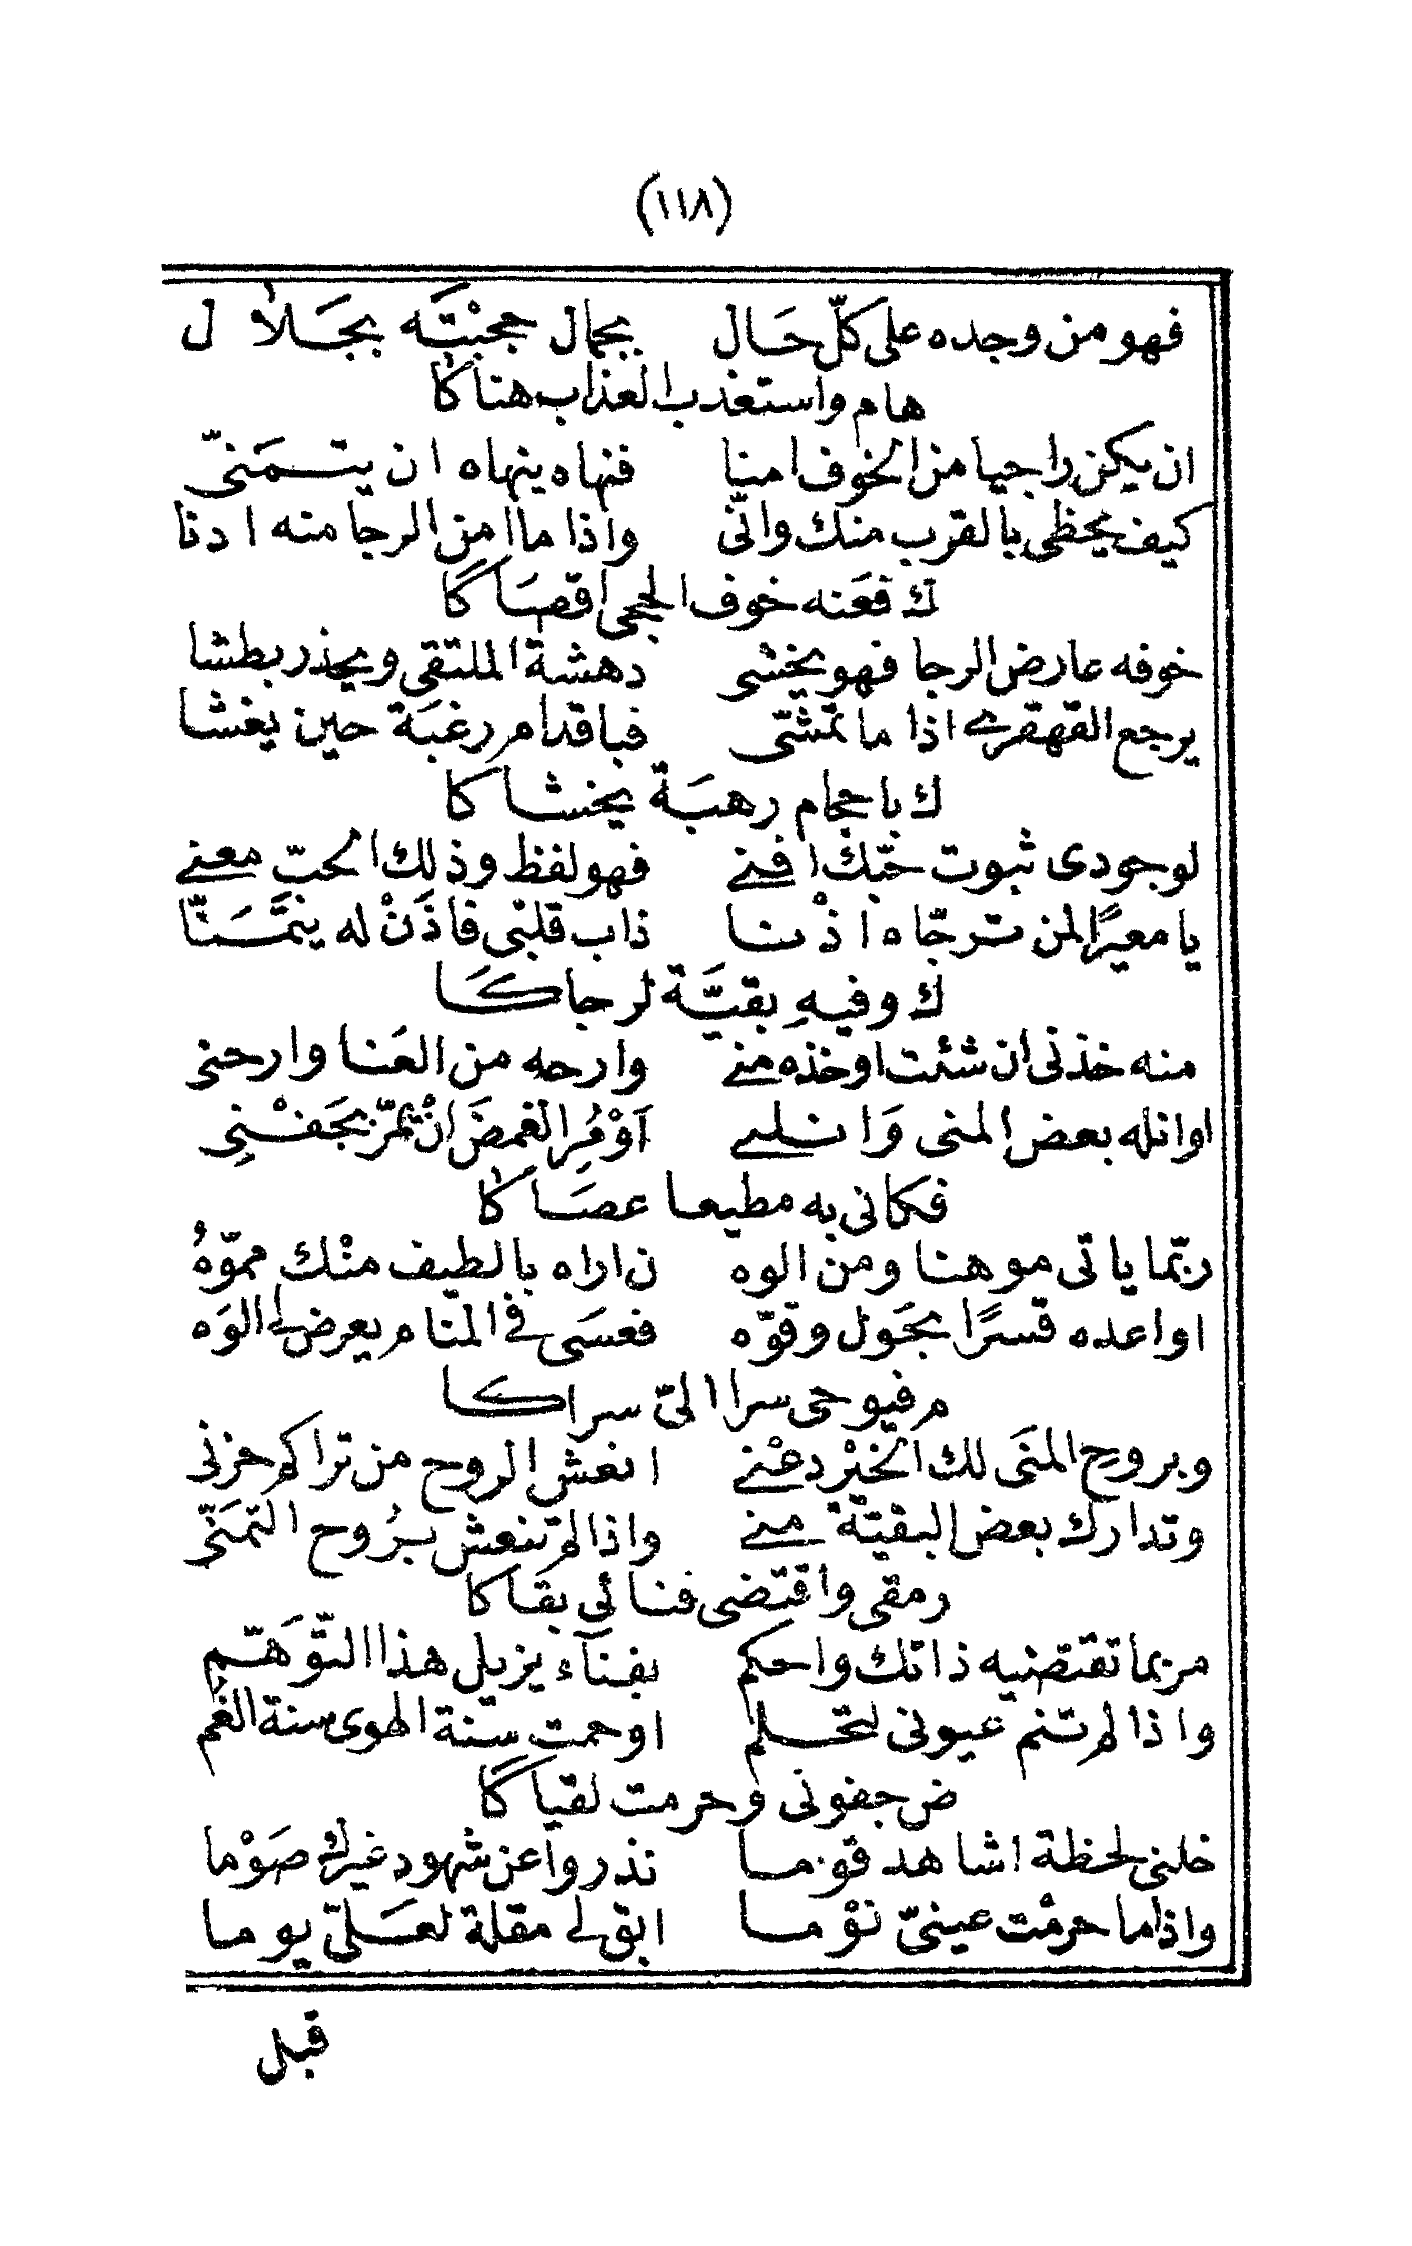 (١١٨)
فهو من وجده على كلّ حَال بجمال حجبْتَه بجَلاٰل
هام واستعذب العذاب هناكا
ان يكن راجيا من الخوف امنا فنهاه ينهاه ان يتمَنىّ
كيف يحظى بالقرب منك وانّى واذا ما امن الرجا منه ادنا
ك فعَنه خوف الحجى اقصَاكا
خوفه عارض الرجا فهو يخشى دهشة الملتقى ويحذر بطشا
يرجع القهقرے اذا ما تمشّى فباقدام رغبَة حين يغشا
ك باحجام رهبَة يخشاكا
لوجودى ثبوت حبّك افنے فهو لفظ وذلك الحبّ معنے
يا معيرًا لمن ترجّاه اذْنا ذاب قلبى فاذَنْ له يتمَنّا
ك وفيهِ بقيَّة لرجاكَا
منه خذنى ان شئت اوخذه منے وارحه من العَنا وارحنى
اوانله بعض المنى وَانلے آوْمُرِ الغمضَ انْ يمرّ بجَفْنِى
فكانى به مطيعا عصَاكا
ربّما ياتى موهنا ومن الوه ن اراه بالطيف منْك مموّهُ
اواعده قسرًا بحَول وقوّه فعسَى فى المنام يعرض لے الوَه
م فيوحى سرا الىّ سراكا
وبروحِ المنَى لك الخيْر دعْنے انعش الروح من تراكم حزنى
وتدارك بعض البقيّة منے واذا لم تنعش برُوح التمَنّى
رمقى واقتضى فنائى بقاكا
مر بما تقتضيه ذاتك واحكم بفنآء يزيل هذا التّوَهّم
واذا لم تنم عيونى لتحلم اوحمت سّنة الهوى سنة الغُم
ض جفونى وحرمت لقياكا
خلنى لحظة اشاهد قوما نذروا عن شهود غيرك صَوْما
واذا ما حرمْت عينىّ نوْما ابق لے مقلة لعَلىّ يوما
قبل